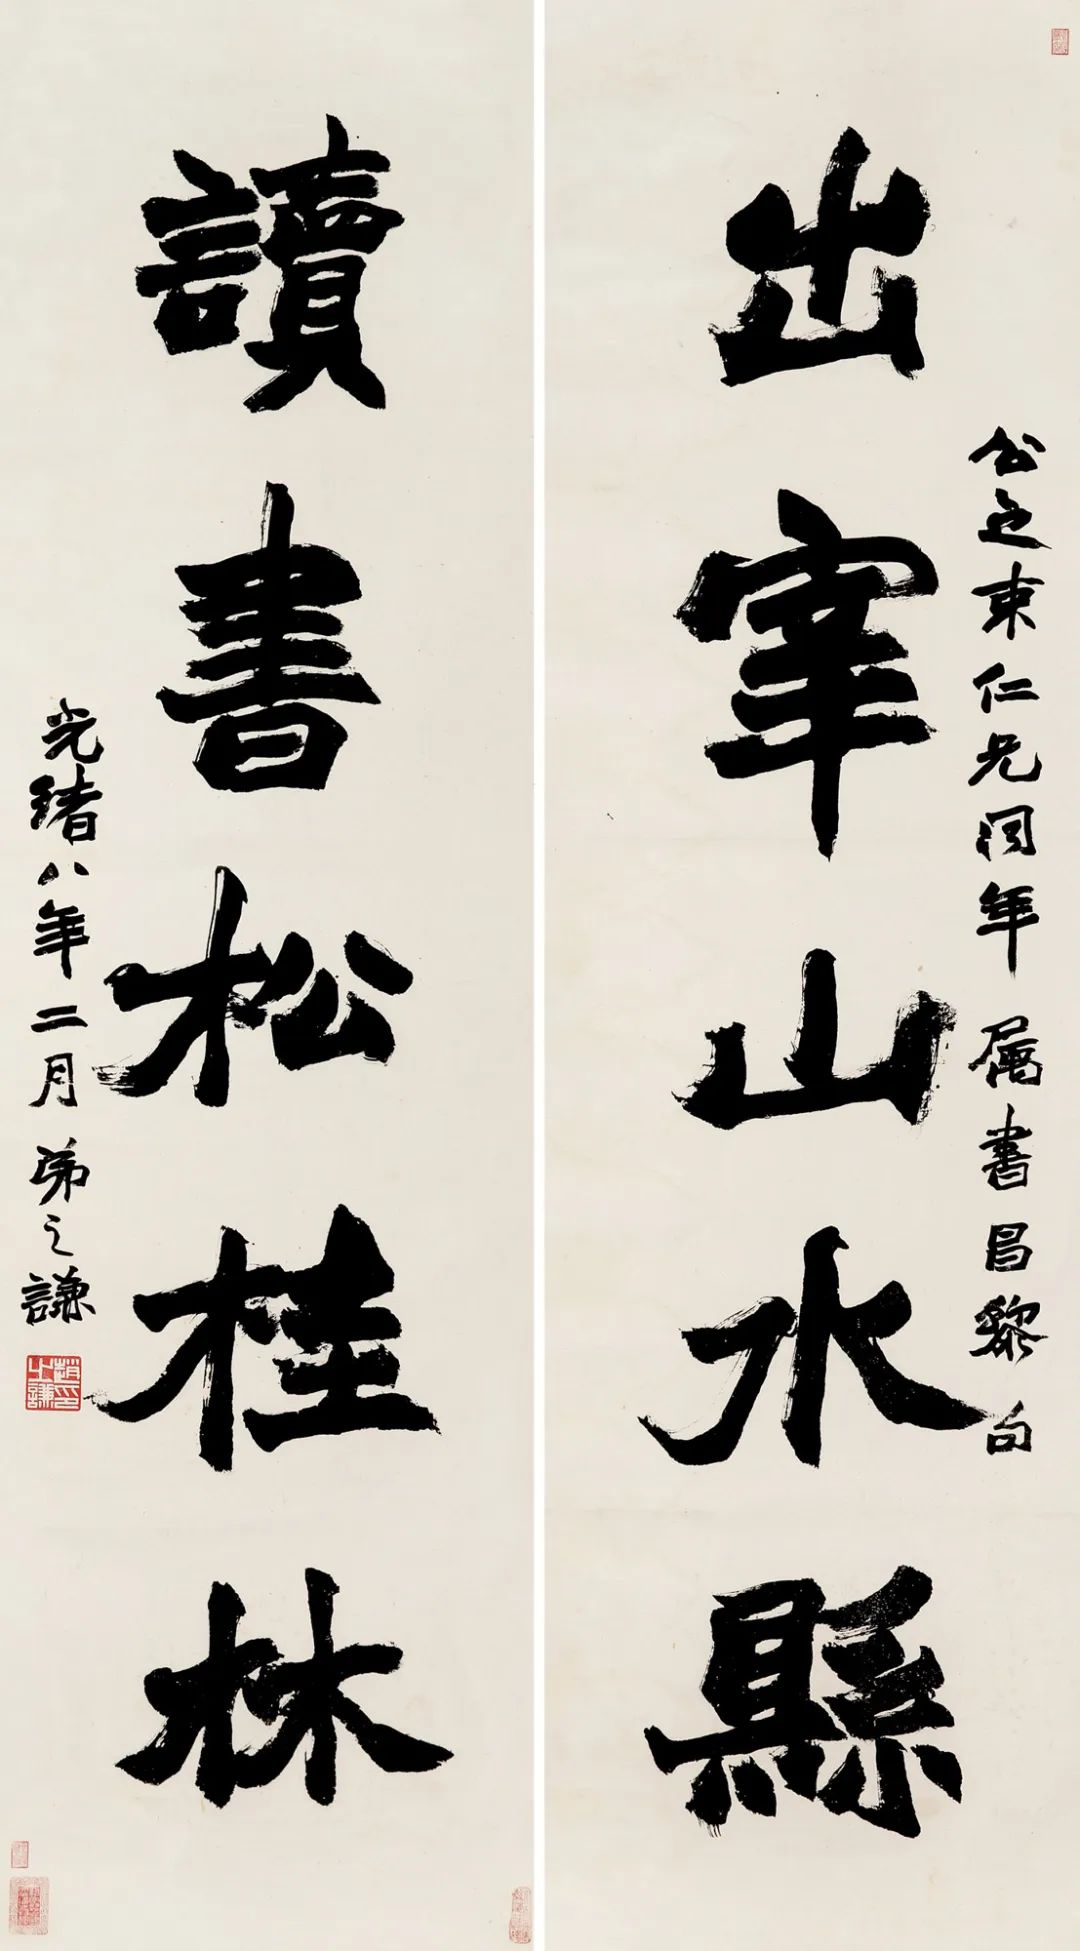 出宰山水縣
公之束仁兄同年屬書昌黎句
讀書松桂林
光緒八年二月弟之謙
趙之謙印